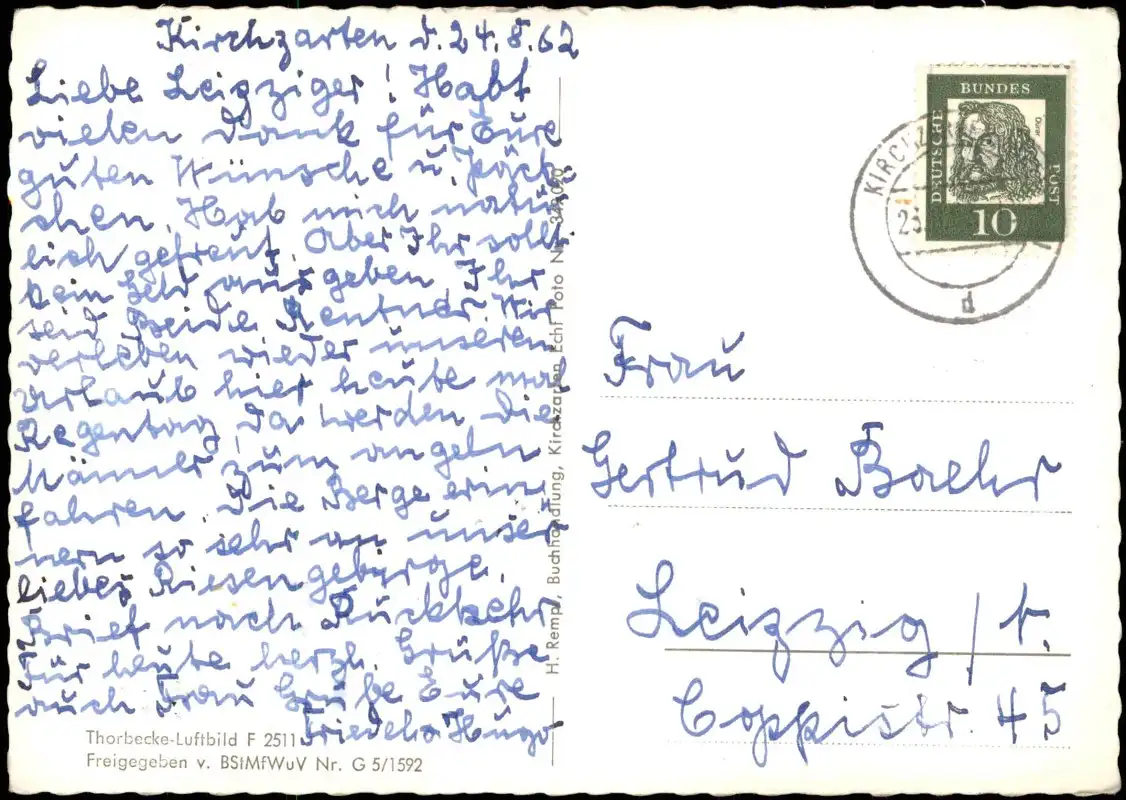 Kirchzarten d. 24.8.62
Liebe Leipziger! Habt
vielen Dank für Eure
guten Wünsche u. Päck-
chen. Hab mich natür-
lich gefreut. Aber Ihr sollt
kein Geld ausgeben, Ihr
seid Beide Rentner. Wir
verleben wieder unseren
Urlaub hier heute mal
Regentag, da werden die
Männer zum angeln
fahren. Die Berge erin-
nern so sehr an unser
liebes Riesengebirge.
Brief nach Rückkehr
Für heute herzl. Grüße
auch Frau Gruße Eure
Friedel u. Hugo
Thorbecke-Luftbild F 2511
Freigegeben v. BStMfWuV Nr. G 5/1592
H. Rempf, Buchhandlung, Kirchzarten Echt Foto Nr.
DEUTSCHE
BUNDES
POST
Dürer
10
KIRCHZ
d
Frau
Gertrud Baehr
Leipzig /
Coppistr. 45